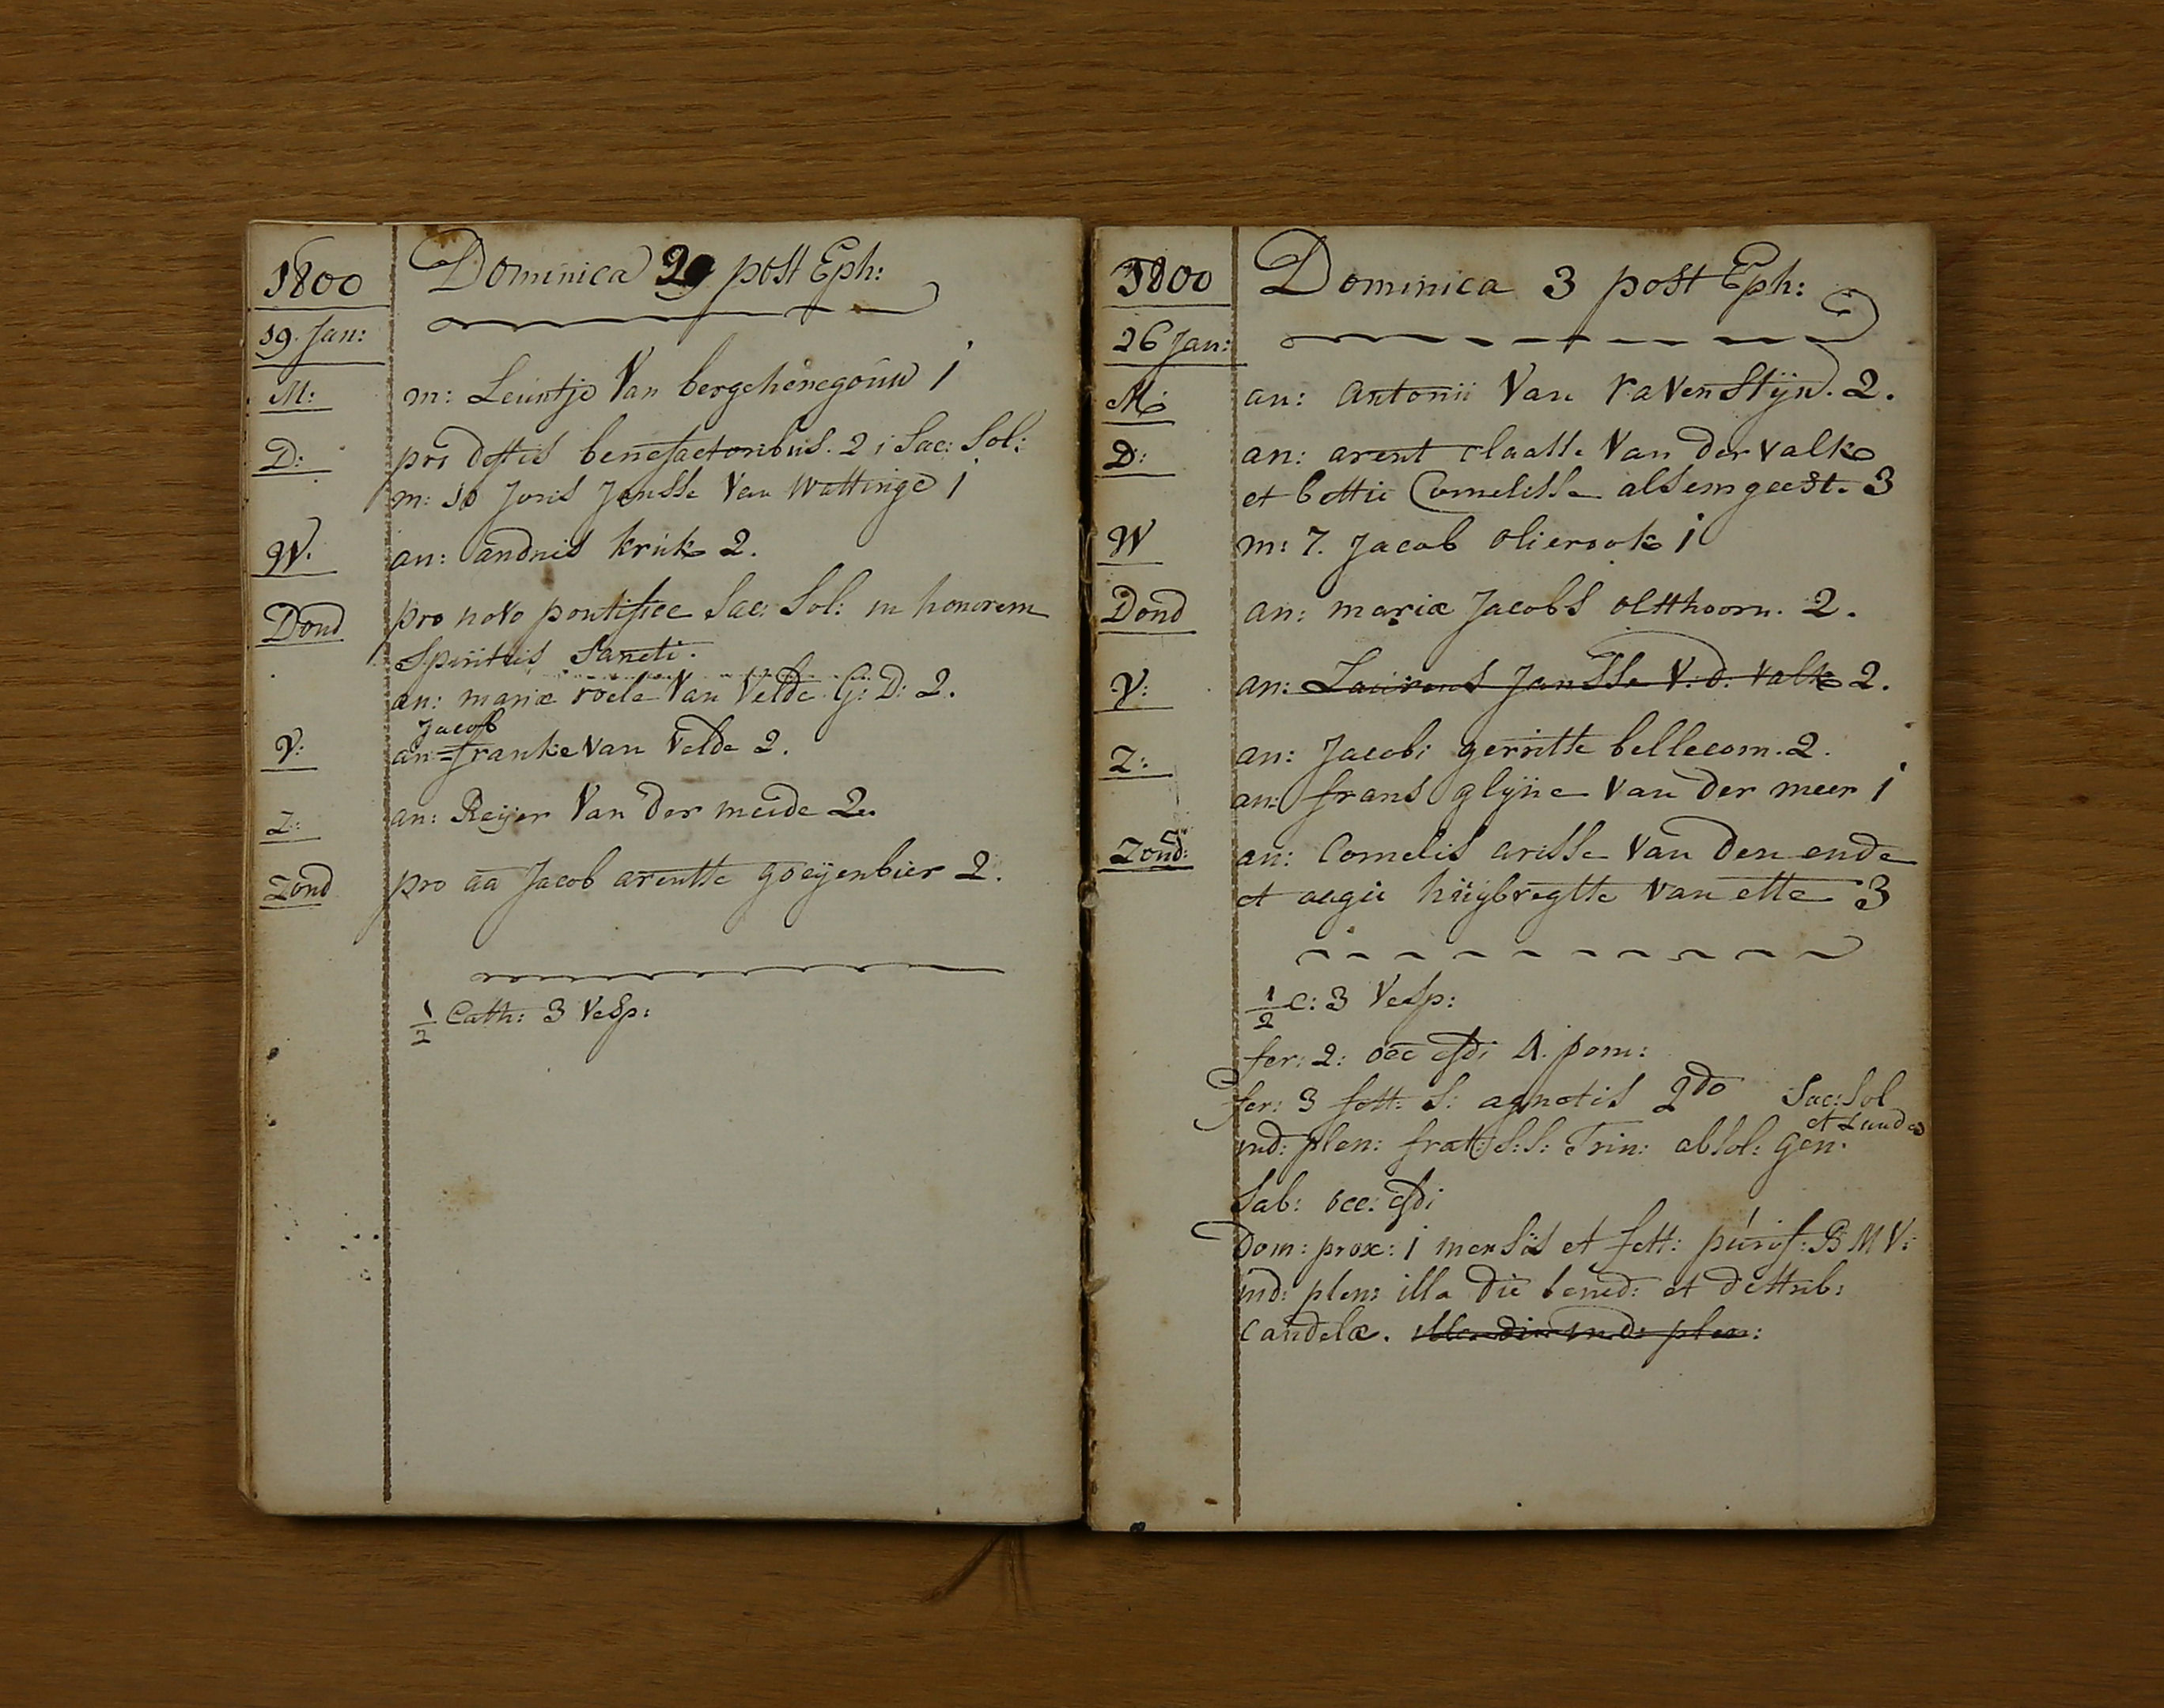 1800
Dominica 2 post Eph:
19. Jan:
M: m: Leuntje Van bergehenegouw 1
D: pro deftis benefactoribus. 2 1 Sac: Sol:
m: 10 Joris Jansse Van Wattinge 1
W. an: andries kruk 2.
Dond pro novo pontifice Sac: Sol: in honorem
Spiritus Sancti.
an: mariæ roele Van Velde G: D: 2.
Jacob
V: an: franke Van Velde 2.
Z: an: Reijer Van der meide 2.
Zond pro aa Jacob arentse goeijenbier 2.
1/2 Cath: 3 Vesp:
1800
Dominica 3 post Eph:
26 Jan:
M: an: Antonii Van Ravenstijn. 2.
D: an: arent claasse Van der valk
et bettie Cornelisse alsemgeest. 3
W m: 7. Jacob olierook 1
Dond an: mariæ Jacobs oltthoorn. 2.
V: an: Laurens Jansse V: d: Valk 2.
Z: an: Jacobi gerritse bellecom. 2.
an: frans glijne Van der meer 1
Zond: an: Cornelis arisse Van den ende
et aegie huijbregtse van ette 3
1/2 C: 3 Vesp:
fer: 2: occ cfdi 4. pom:
fer: 3 fest: S: agnetis 2do Sac: Sol
et Laudes
ind: plen: frat: S: S: Trin: absol: gen:
Sab: occ: cfdi
Dom: prox: 1 mensis et fest: purif: B M V:
ind: plen: illa die bened: et destrib:
Candelæ. illa die ind: plen: